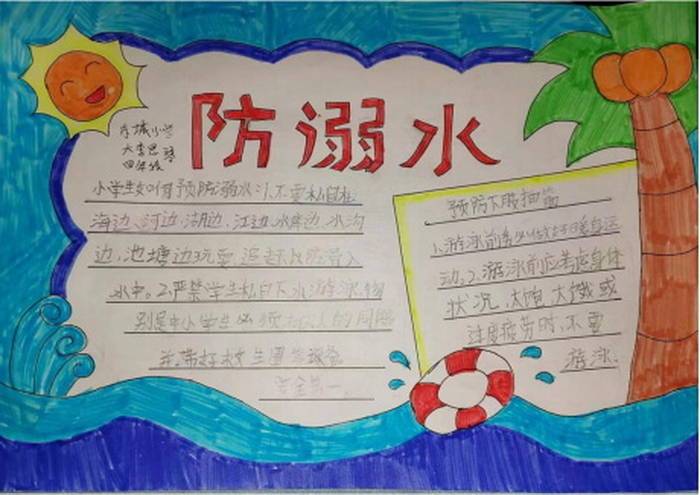 防溺水
小学
四年级
小学生如何预防溺水:1.不要私自在
海边、河边、湖边、江边、水库边、水沟
边、池塘边玩耍、追赶以防导入
水中。2.严禁学生私自下水游泳,特
别是中小学生必须大人的同陪
并带好救生圈等设备
安全第一
预防下肢抽筋
1.游泳前务必做好暖身运
动。2.游泳前应考虑身体
状况,太饱、太饿或
过度疲劳时,不要
游泳.